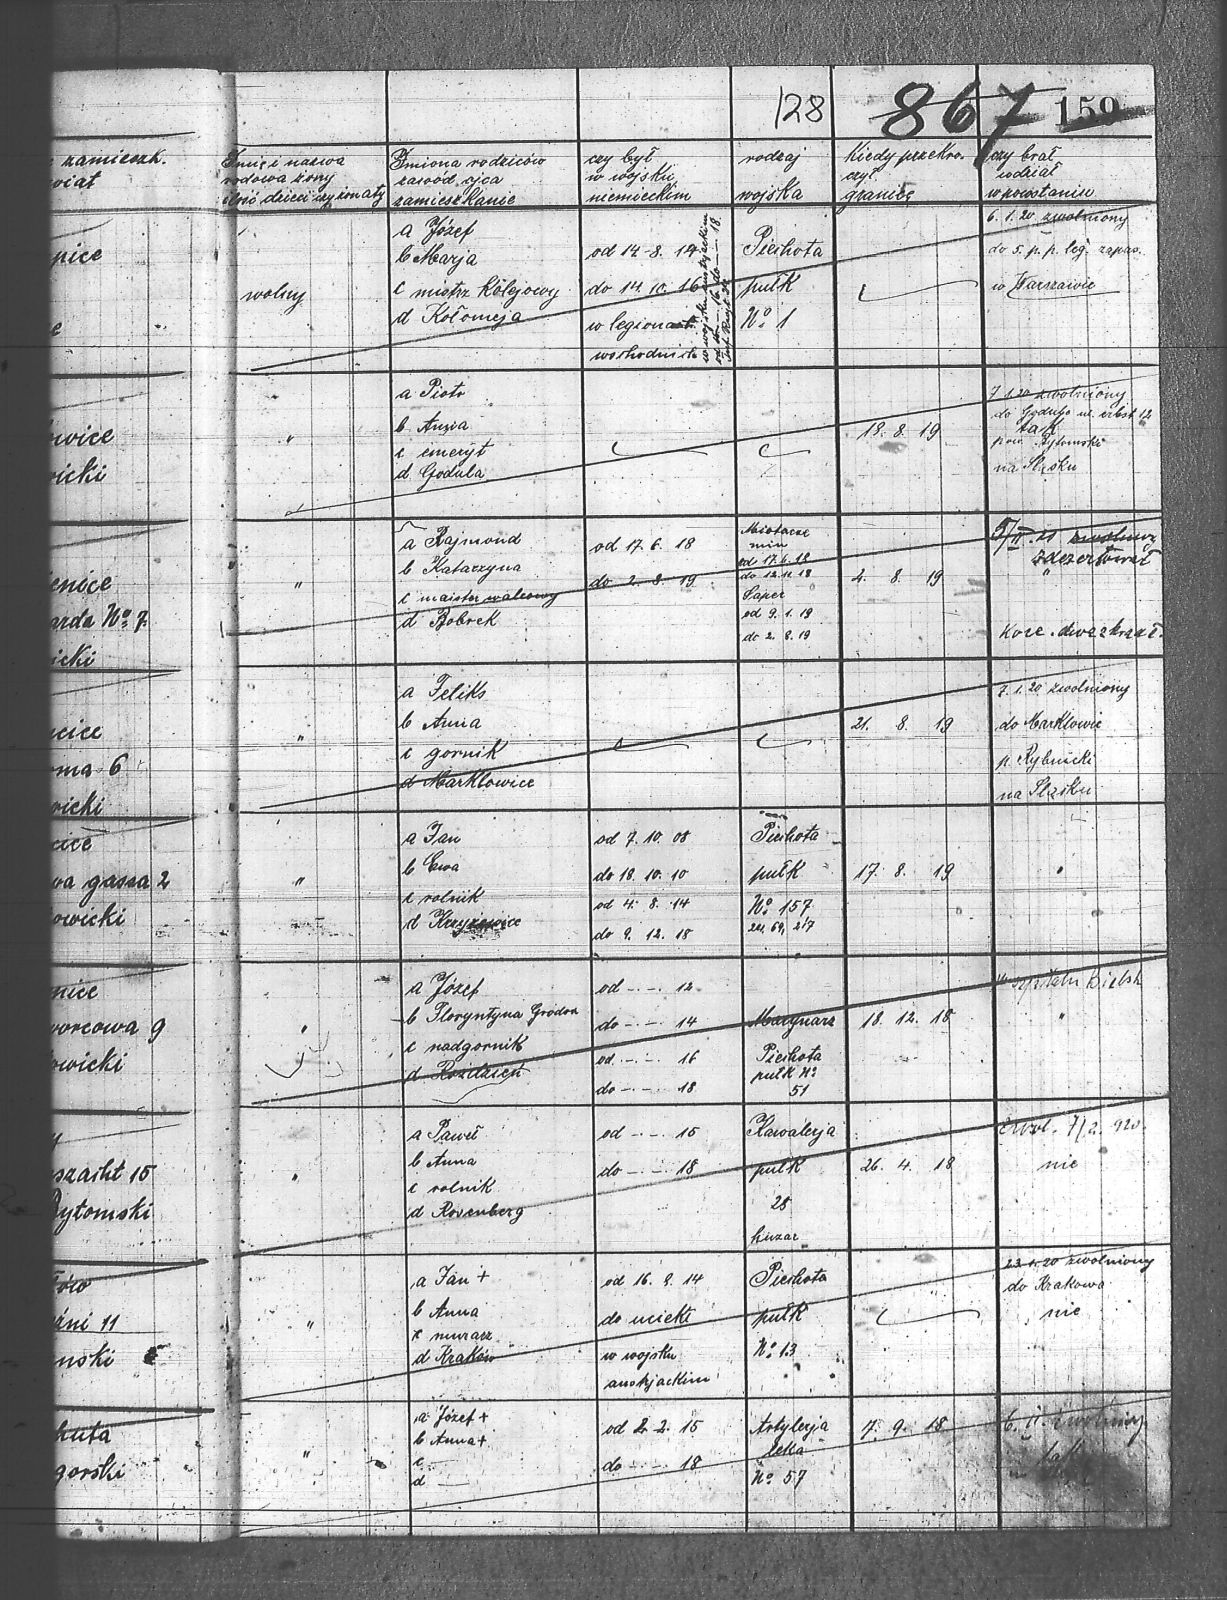 128 867 159
zamieszk.
wiat
Imię i nazwa
rodowa żony
ilość dzieci czy żonaty
Imiona rodziców
zawód ojca
zamieszkanie
czy był
w wojsku
niemieckim
rodzaj
wojska
Kiedy przekro.
czył
granicę
czy brał
udział
w powstaniu
pice
wolny
a Józef
b Marja
c mistrz kolejowy
d Kołomeja
od 14 8. 14
do 14 10. 16
w legionach
wschodnich
Piechota
pułk
No. 1
6. 1. 20 zwolniony
do 5. p. p. leg. zapas.
w Warszawie
owice
wicki
"
a Piotr
b Anna
c emeryt
d Godula
18. 8. 19
7 1. 20 zwolniony
tak
pow. Bytomski
na Śląsku
ienice
arda No. 7.
icki
"
a Rajmund
b Katarzyna
c maister walcowy
d Bobrek
od 17. 6. 18
do 2. 8. 19
Miotacze
min
od 17. 6. 18
do 12. 11. 18
Saper
od 9. 1. 19
do 2. 8. 19
4. 8. 19
zdezerterował
cice
ma 6
wicki
"
a Feliks
b Anna
c gornik
d Marklowice
21. 8. 19
7. 1. 20 zwolniony
do Marklowic
p. Rybnicki
na Śląsku
cice
wa gassa 2
owicki
"
a Jan
b Ewa
c rolnik
d Krzyżowice
od 7. 10. 08
do 18. 10. 10
od 4. 8. 14
do 9. 12. 18
Piechota
pułk
No. 157
17. 8. 19
nice
worcowa 9
owicki
"
a Józef
b Floryntyna
c nadgornik
d Rozdzień
od - - 12
do - - 14
od - - 16
do - - 18
Marynarz
Piechota
pułk No.
51
18. 12. 18
szpitalu Bielsk
"
szacht 15
Bytomski
"
a Paweł
b Anna
c rolnik
d Rosenberg
od - - 15
do - - 18
Kawalerja
pułk
huzar
26. 4. 18
zwol. 7/2. 920.
nie
ni 11
nski
"
a Jan +
b Anna
c murarz
d Kraków
od 16. 9. 14
do uciekł
w wojsku
austrjackim
Piechota
pułk
No. 13
zwolniony
do Krakowa
nie
huta
gorski
"
a Józef +
b Anna +
c —
d —
od 2. 2. 15
do - - 18
Artylerja
lekka
No. 57
7. 9. 18